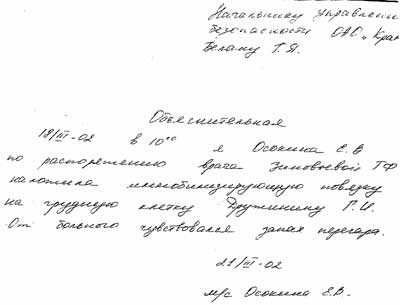 Начальнику Управлени
безопасности ОАО „Крас
Белану Г.Я.
Объяснительная
18/III-02 в 10⁰⁰ я Осокина Е.В
по распоряжению врача Зиновьевой Т.Ф
наложила иммобилизирующую повязку
на грудную клетку Дружинину Г.И.
От больного чувствовался запах перегара.
21/III-02
м/с Осокина Е.В.